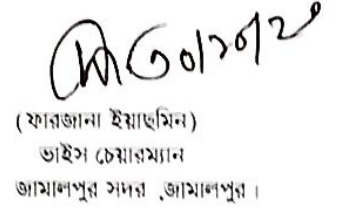 ৩০/১০/২০
(ফারজানা ইয়াছমিন)
ভাইস চেয়ারম্যান
জামালপুর সদর ,জামালপুর।